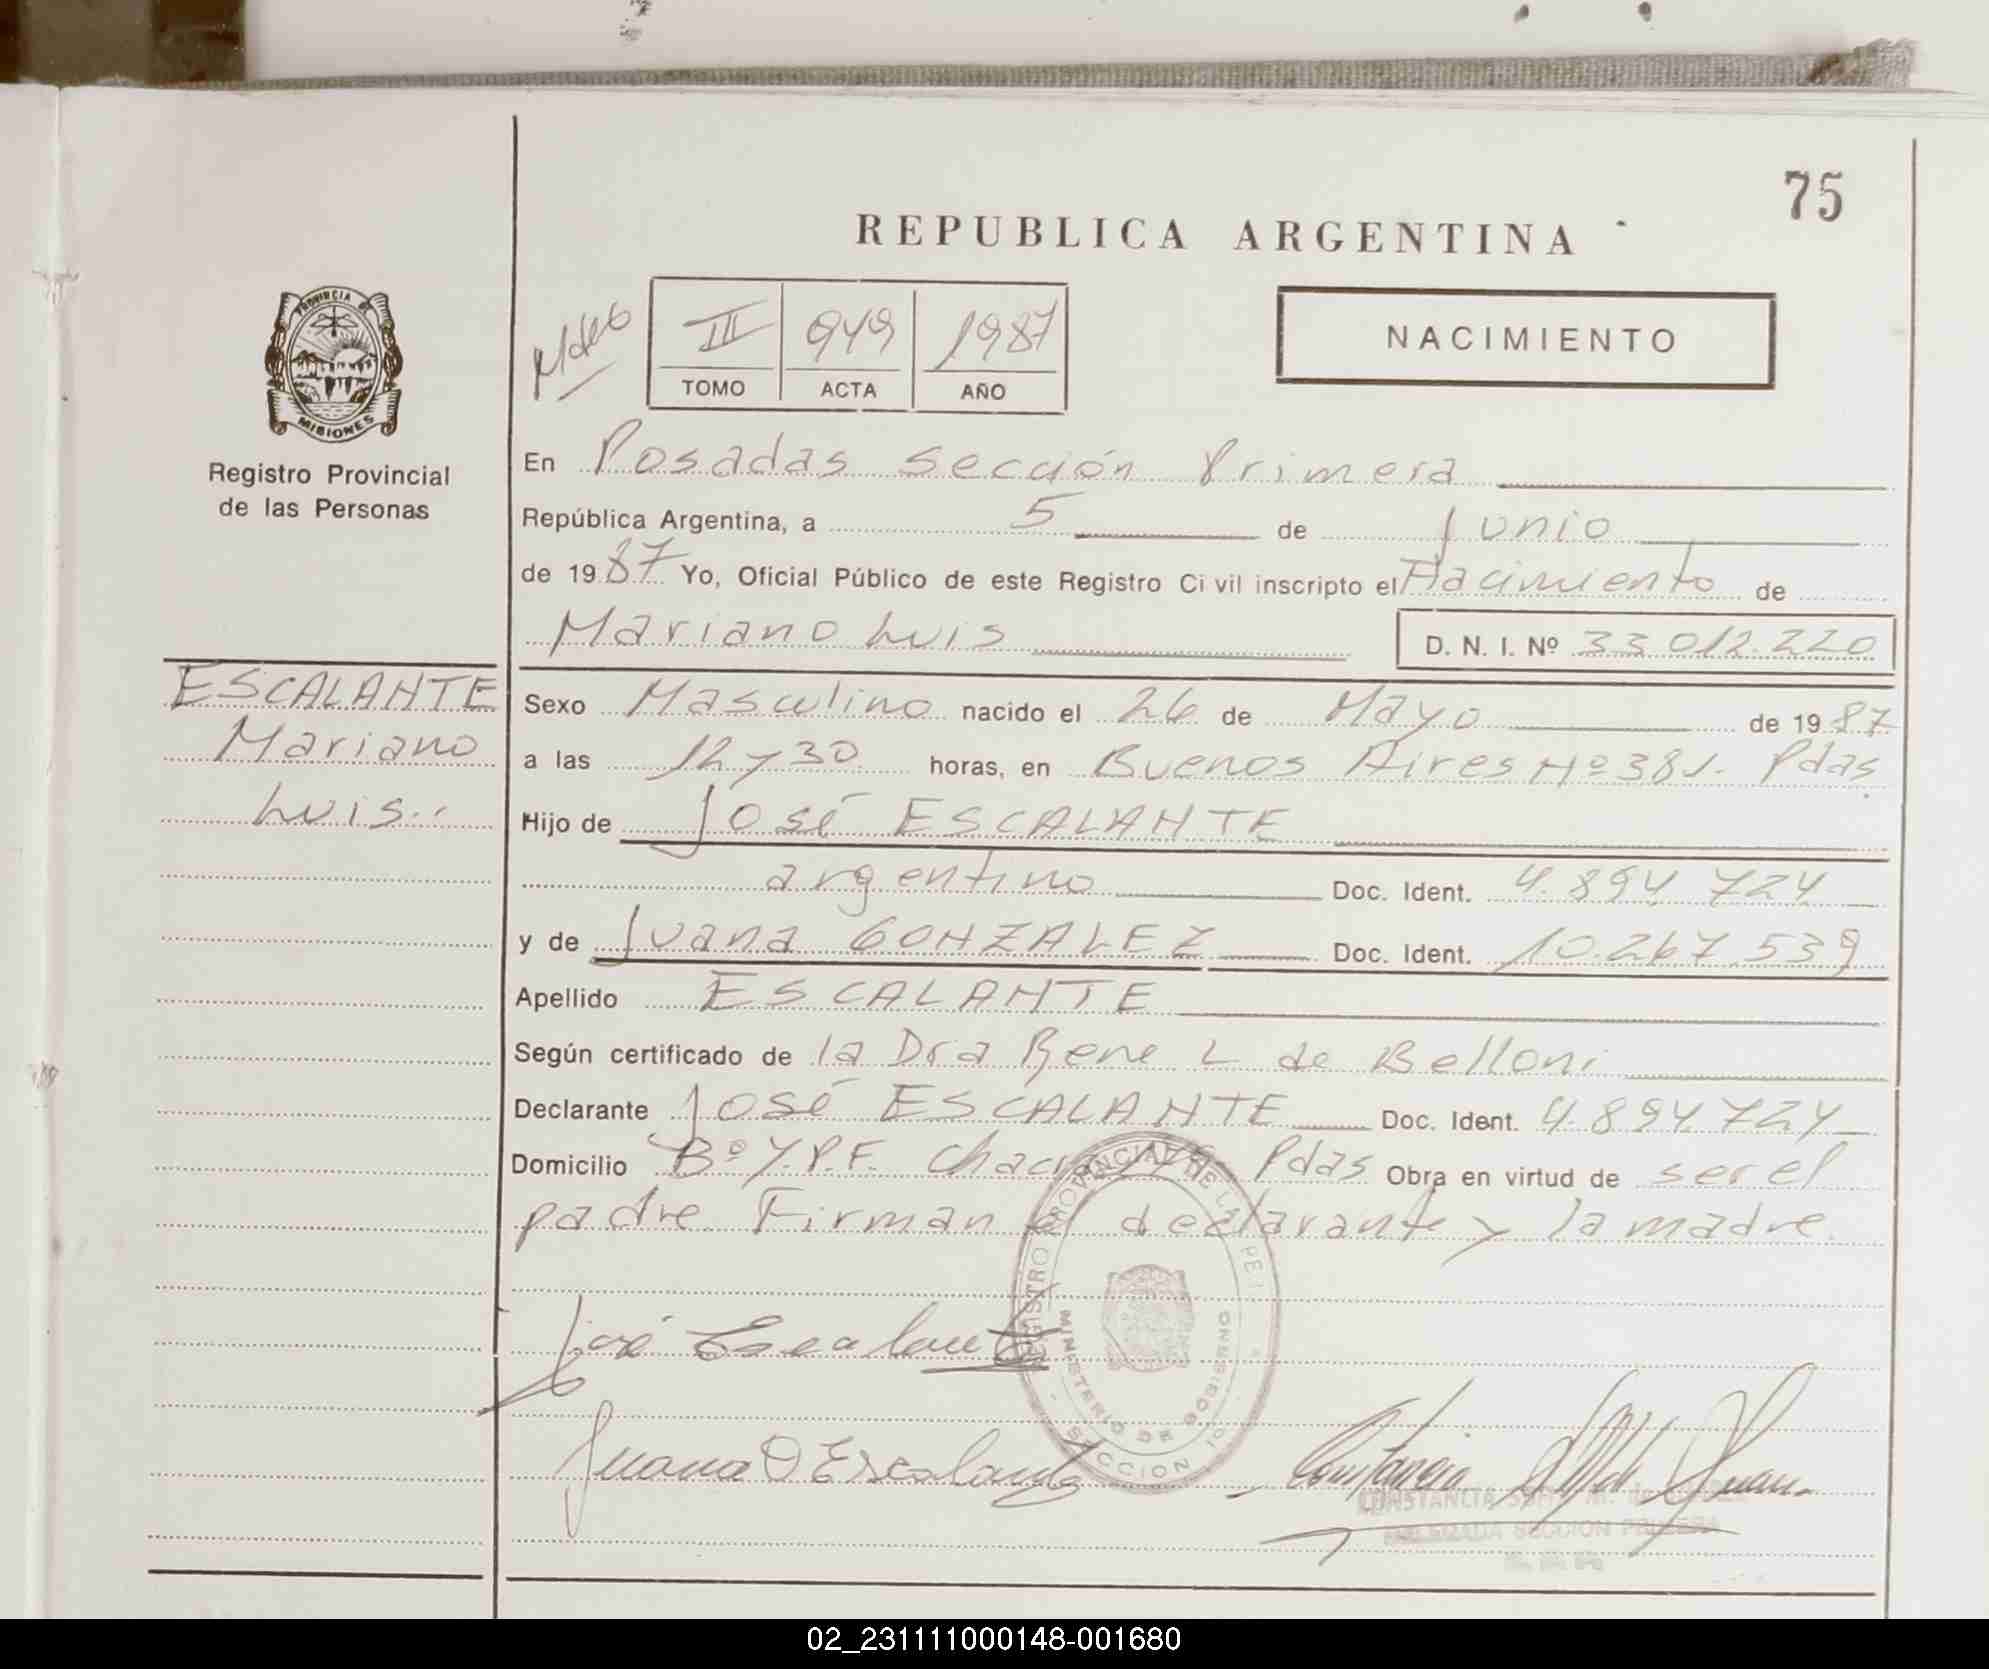 75
REPUBLICA ARGENTINA
PROVINCIA DE
MISIONES
Registro Provincial
de las Personas
III 949 1987
TOMO ACTA AÑO
NACIMIENTO
En Posadas Sección Primera
República Argentina, a 5 de Junio
de 1987 Yo, Oficial Público de este Registro Civil inscripto el Nacimiento de
Mariano Luis D. N. I. Nº 33.012.220
ESCALANTE
Mariano
Luis.
Sexo Masculino nacido el 26 de Mayo de 1987
a las 12 y 30 horas, en Buenos Aires Nº 381. Pdas
Hijo de José ESCALANTE
argentino Doc. Ident. 4.894.724
y de Juana GONZALEZ Doc. Ident. 10.267.539
Apellido ESCALANTE
Según certificado de la Dra Rene L de Belloni
Declarante José ESCALANTE Doc. Ident. 4.894.724
Domicilio Bº Y.P.F. Pdas Obra en virtud de ser el
padre Firman el declarante y la madre.
REGISTRO PROVINCIAL DE LAS
MINISTERIO DE GOBIERNO
SECCION 1º
José Escalante
Juana Escalante
CONSTANCIA
SECCION PRIMERA
02_231111000148-001680